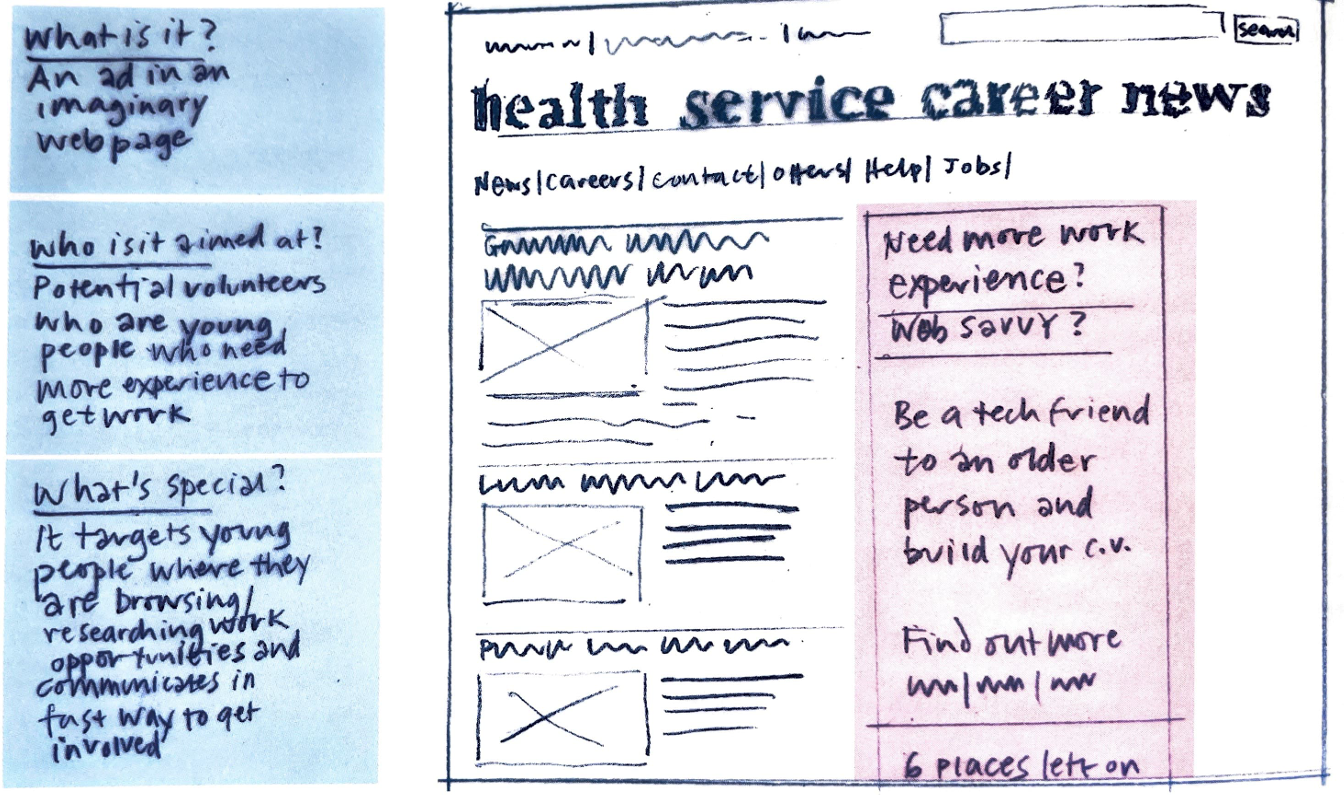 What is it?
An ad in an
imaginary
web page
Who is it aimed at?
Potential volunteers
who are young
people who need
more experience to
get work
What's special?
It targets young
people where they
are browsing/
researching work
opportunities and
communicates in
fast way to get
involved
search
health service career news
News/Careers/contact/offers/Help/Jobs/
Need more work
experience?
Web savvy?
Be a tech friend
to an older
person and
build your c.v.
Find out more
6 places left on